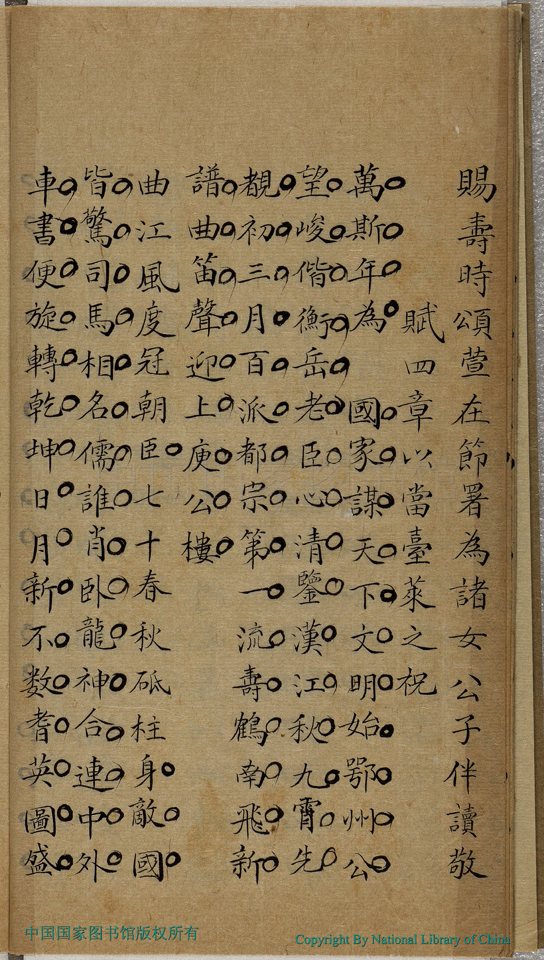 賜壽時頌萱在節署為諸女公子伴讀敬
賦四章以當臺萊之祝
萬斯年為 國家謀天下文明始鄂州公
望峻偕衡岳老臣心清鑒漢江秋九霄先
覩初三月百派都宗第一流壽鶴南飛新
譜曲笛聲迎上庾公樓
曲江風度冠朝臣七十春秋砥柱身敵國
皆驚司馬相名儒誰肖卧龍神合連中外
車書便旋轉乾坤日月新不数耆英圖盛
中国国家图书馆版权所有
Copyright By National Library of China